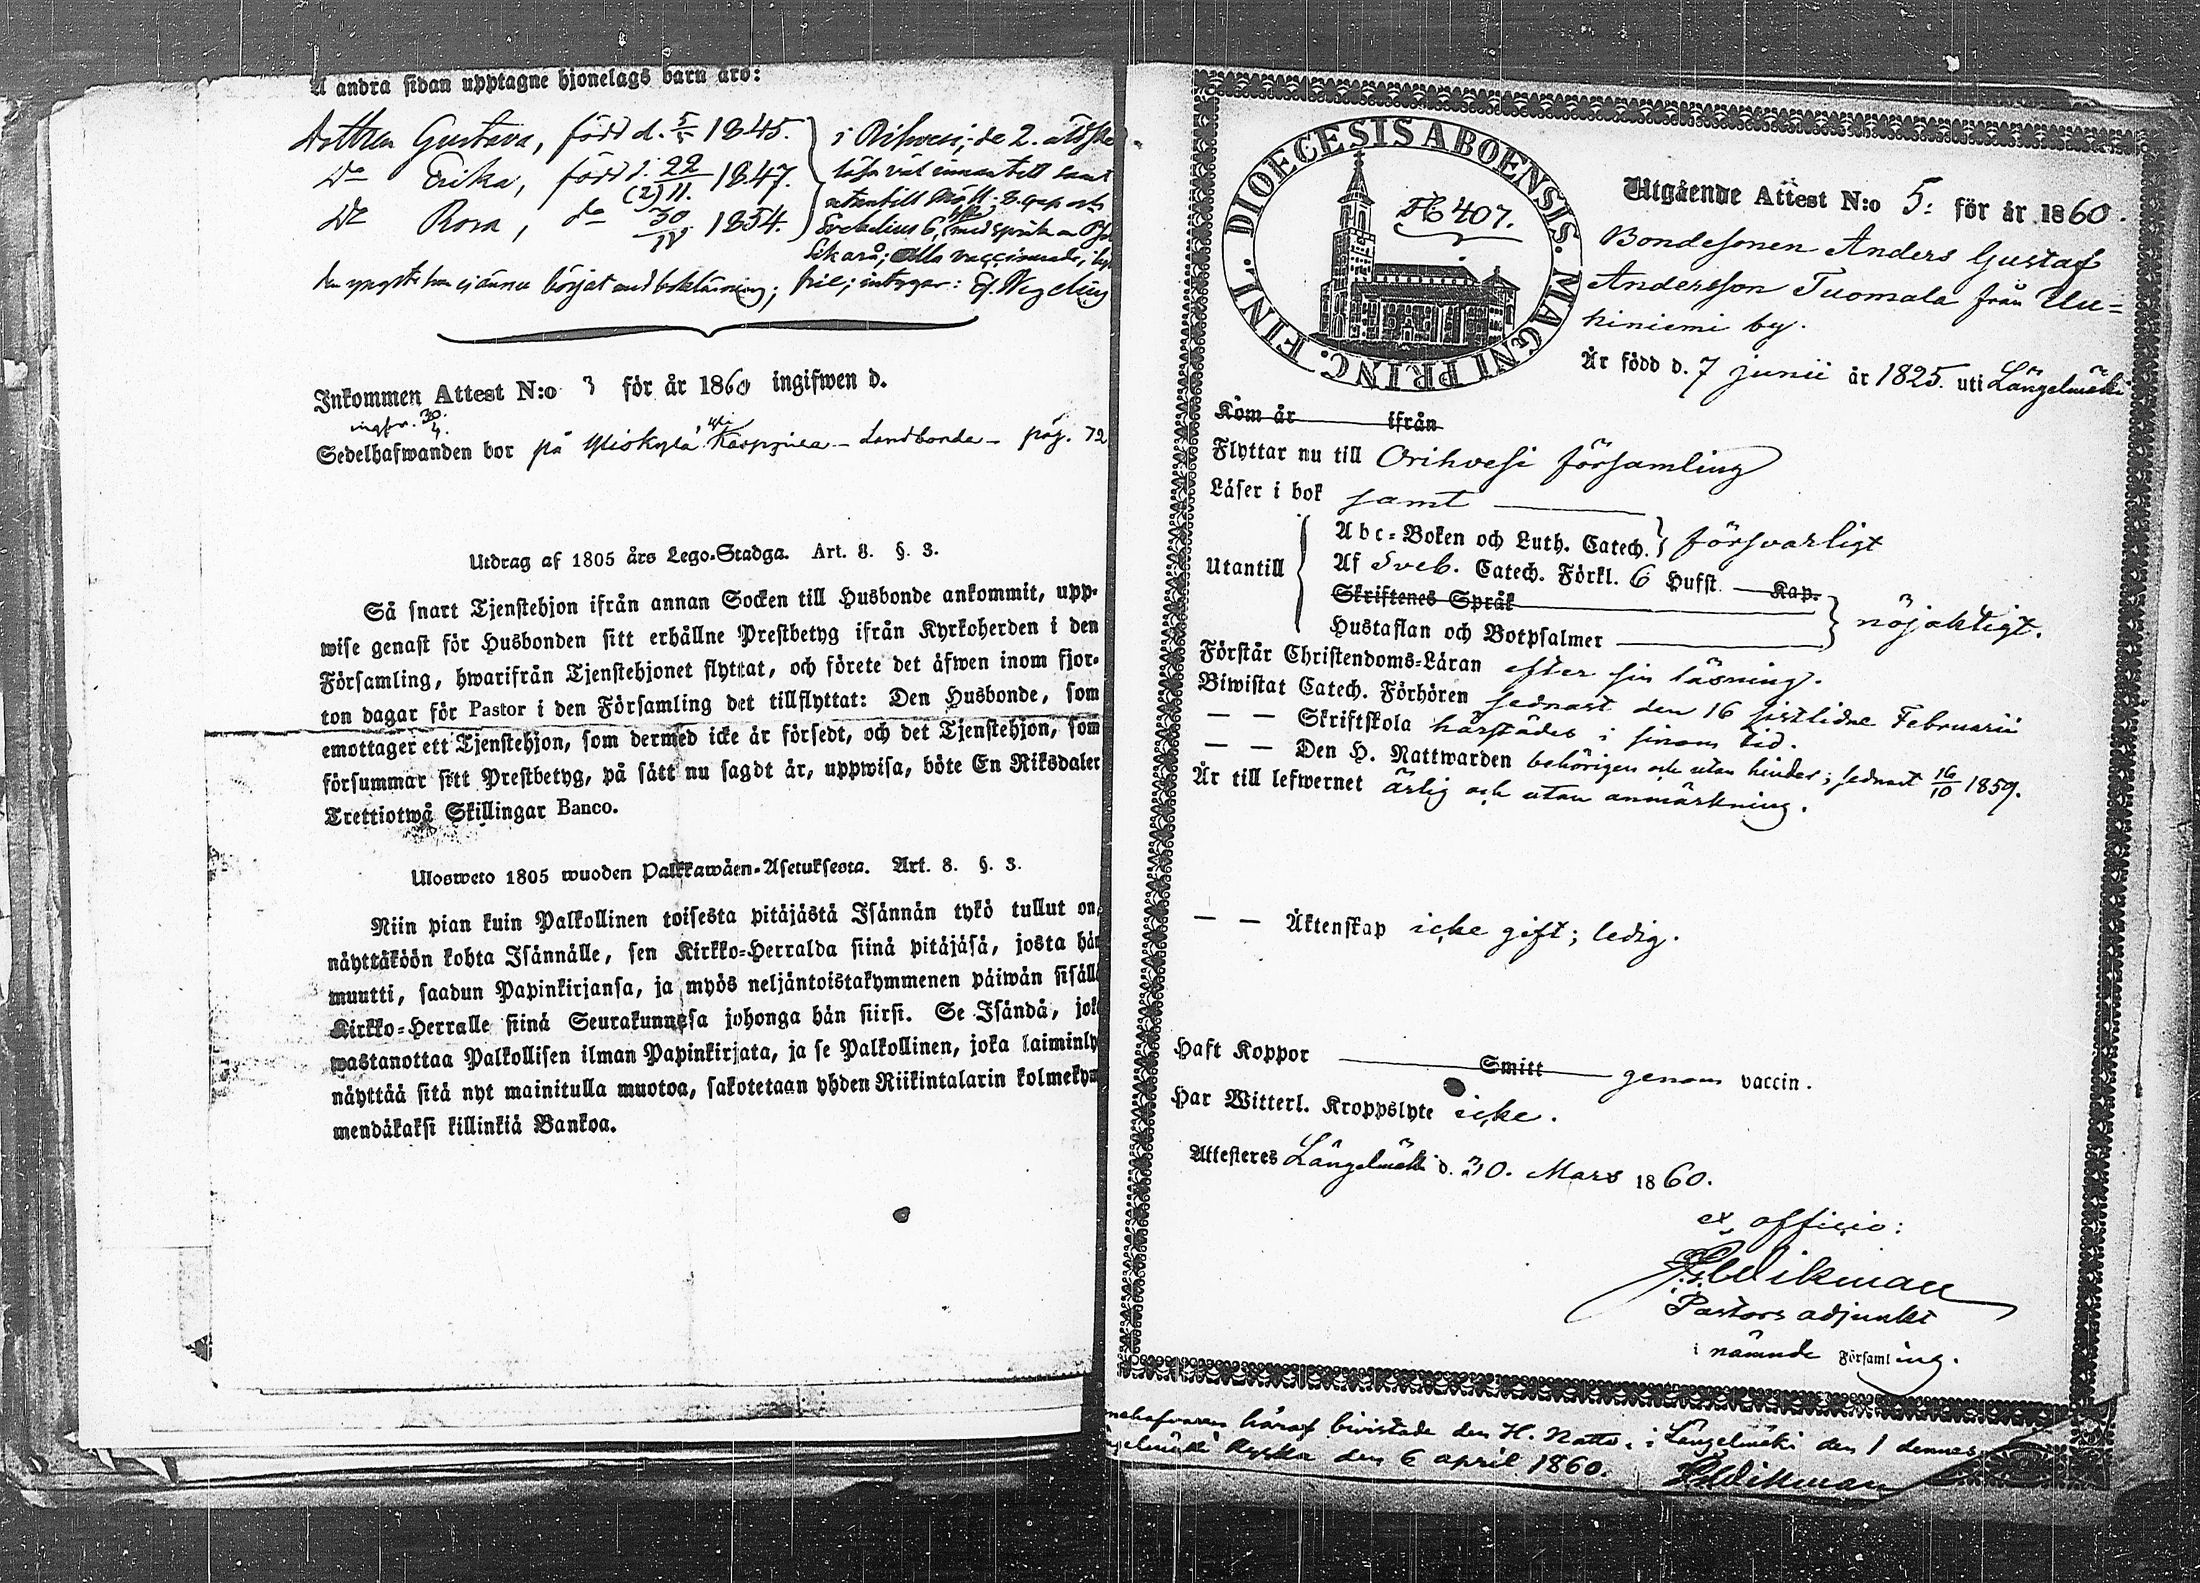 å andra sidan upptagne hjonelags barn äro:
Dottren Gustava, född d. 5/5 1845.
Do Erika, född d. 22/(2)11. 1847.
Do Rosa, do 30/IV 1854.
i Orihvesi; de 2. äldste
läsa väl innantill samt
utantill
Svebelius 6, med språk
alla vaccinerade;
den yngsta har ej ännu börjat med bokläsning; frie; intygar: Ef. Wegelius
Inkommen Attest N:o 3 för år 1860 ingifwen d.
ingifv. 30/4.
Sedelhafwanden bor på Yliskylä Karppila – Landbonde – pag. 72
Utdrag af 1805 års Lego-Stadga. Art. 8. §. 3.
Så snart Tjenstehjon ifrån annan Socken till Husbonde ankommit, upp-
wise genast för Husbonden sitt erhållne Prestbetyg ifrån Kyrkoherden i den
Församling, hwarifrån Tjenstehjonet flyttat, och förete det äfwen inom fjor-
ton dagar för Pastor i den Församling det tillflyttat: Den Husbonde, som
emottager ett Tjenstehjon, som dermed icke är försedt, och det Tjenstehjon, som
försummar sitt Prestbetyg, på sätt nu sagdt är, uppwisa, böte En Riksdaler
Trettiotwå Skillingar Banco.
Ulosweto 1805 wuoden Palkkawäen-Asetuksesta. Art. 8. §. 3.
Niin pian kuin Palkollinen toisesta pitäjästä Isännän tykö tullut on,
näyttäköön kohta Isännälle, sen Kirkko-Herralda siinä pitäjäsä, josta hän
muutti, saadun Papinkirjansa, ja myös neljäntoistakymmenen päiwän sisällä
Kirkko-Herralle siinä Seurakunnasa johonga hän siirsi. Se Isändä, joka
wastanottaa Palkollisen ilman Papinkirjata, ja se Palkollinen, joka laiminly
näyttää sitä nyt mainitulla muotoa, sakotetaan yhden Riikintalarin kolmekym
mendäkaksi killinkiä Bankoa.
DIOECESIS ABOENSIS. MAGNI PRINC. FINL.
No 407.
Utgående Attest N:o 5: för år 1860.
Bondesonen Anders Gustaf
Andersson Tuomala från Uu=
kiniemi by.
Är född d. 7 junii år 1825. uti Längelmäki
Kom år ifrån
Flyttar nu till Orihvesi församling
Läser i bok samt
Utantill
Abc-Boken och Luth. Catech. försvarligt
Af Sveb. Catech. Förkl. 6 Hufst. Kap.
Skriftenes Språk
Hustaflan och Botpsalmer nöjaktigt.
Förstår Christendoms-Läran efter sin läsning.
Biwistat Catech. Förhören sednast den 16 sistlidne Februarii
— — Skriftskola härstädes i sinom tid.
— — Den H. Nattwarden behörigen och utan hinder; sednast 16/10 1859.
Är till lefwernet ärlig och utan anmärkning.
— — Äktenskap icke gift; ledig.
Haft Koppor Smitt genom vaccin.
Har Witterl. Kroppslyte icke.
Attesteres Längelmäki d. 30. Mars 1860.
ex officio:
Wikman
Pastors adjunkt
i nämnde Församling.
häraf bivistade den H. Nattv. i Längelmäki den 1 dennes
kyrka den 6 april 1860. Wikman